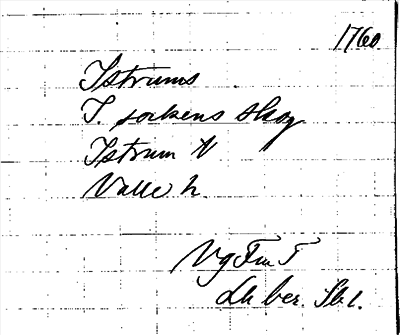 1760.
Istrums
I. sockens skog
Istrum N
Valle h.
Vg Fm T
Lh ber. Sk l.